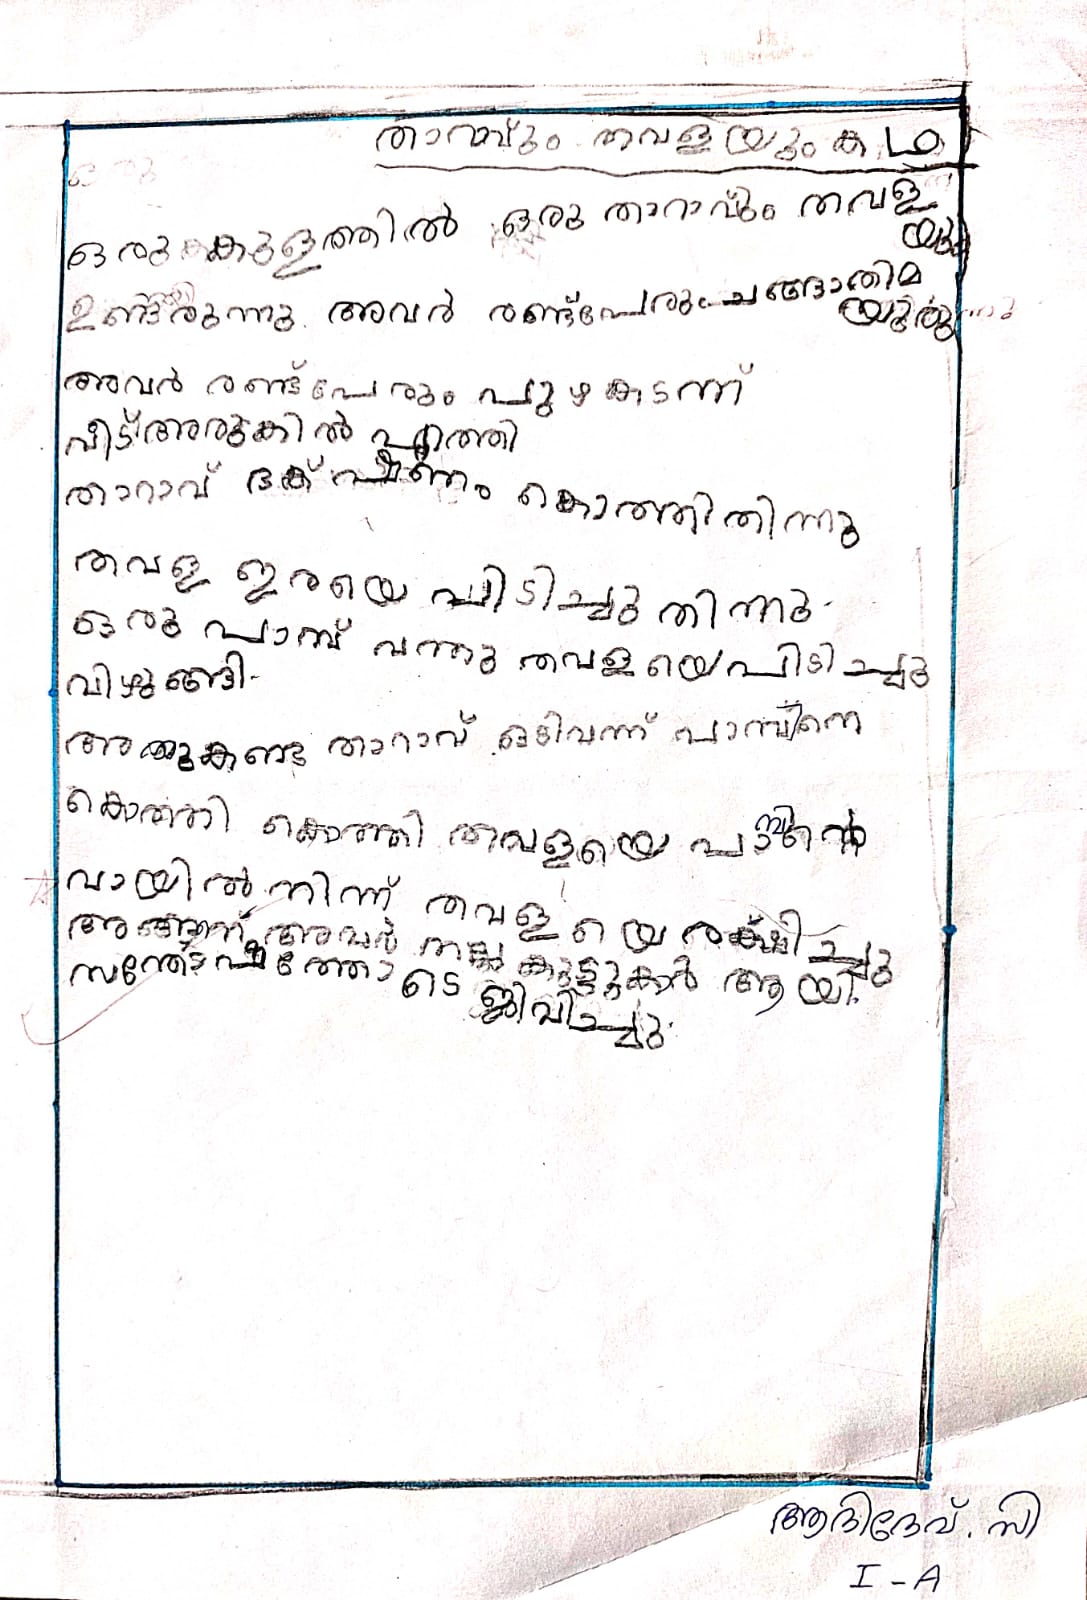 താറാവും തവളയും കഥ
ഒരു കുളത്തിൽ ഒരു താറാവും തവള
യും
ഉണ്ടായിരുന്നു. അവർ രണ്ട്പേരും ചങ്ങാതിമ
അവർ രണ്ട്പേരും പുഴ കടന്ന്
വീട്അരുകിൽ എത്തി
താറാവ് ഭക്ഷണം കൊത്തി തിന്നു
തവള ഇരയെ പിടിച്ചു തിന്നു.
ഒരു പാമ്പ് വന്നു തവളയെ പിടിച്ചു
വിഴുങ്ങി.
അതുകണ്ട താറാവ് ഒടിവന്ന് പാമ്പിനെ
കൊത്തി കൊത്തി തവളയെ പാമ്പിന്റെ
വായിൽ നിന്ന് തവളയെ രക്ഷിച്ചു
അങ്ങനെ അവർ നല്ല കൂട്ടുകാർ ആയി.
സന്തോഷത്തോടെ ജീവിച്ചു.
ആദിദേവ്. സി
I - A